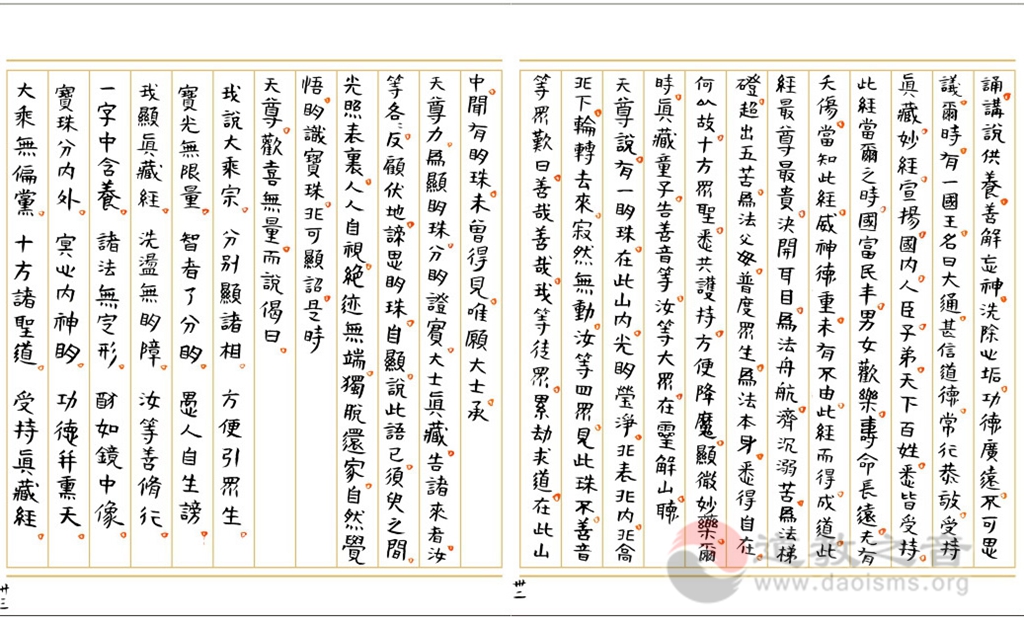 誦講說供養善解忘神洗除心垢功德廣遠不可思
議爾時有一國王名曰大通甚信道德常行恭敬受持
眞藏妙經宣揚國內人臣子弟天下百姓悉皆受持
此經當爾之時國富民丰男女歡樂壽命長遠夫有
夭傷當知此經威神德重未有不由此經而得成道此
經最尊最貴決開耳目爲法舟航濟沉溺苦爲法梯
磴超出五苦爲法父母普度眾生爲法本身悉得自在
何以故十方眾聖悉共護持方便降魔顯微妙樂爾
時眞藏童子告善音等汝等大眾在靈解山聽
天尊說有一明珠在此山內光明瑩淨非表非內非高
非下輪轉去來寂然無動汝等四眾見此珠不善音
等眾歎曰善哉善哉我等徒眾累劫求道在此山
卅二
中聞有明珠未曾得見唯願大士承
天尊力爲顯明珠分明證實大士眞藏告諸來者汝
等各各反顧伏地諦思明珠自顯說此語已須臾之間
光照表裏人人自視絶迹無端獨脫還家自然覺
悟明識寶珠非可顯認是時
天尊歡喜無量而說偈曰
我說大乘宗 分別顯諸相 方便引眾生
寶光無限量 智者了分明 愚人自生謗
我顯眞藏經 洗盪無明障 汝等善脩行
一字中含養 諸法無定形 酧如鏡中像
寶珠分內外 冥心內神明 功德并熏天
大乘無偏黨 十方諸聖道 受持眞藏經
卅三
道教之音
www.daoisms.org